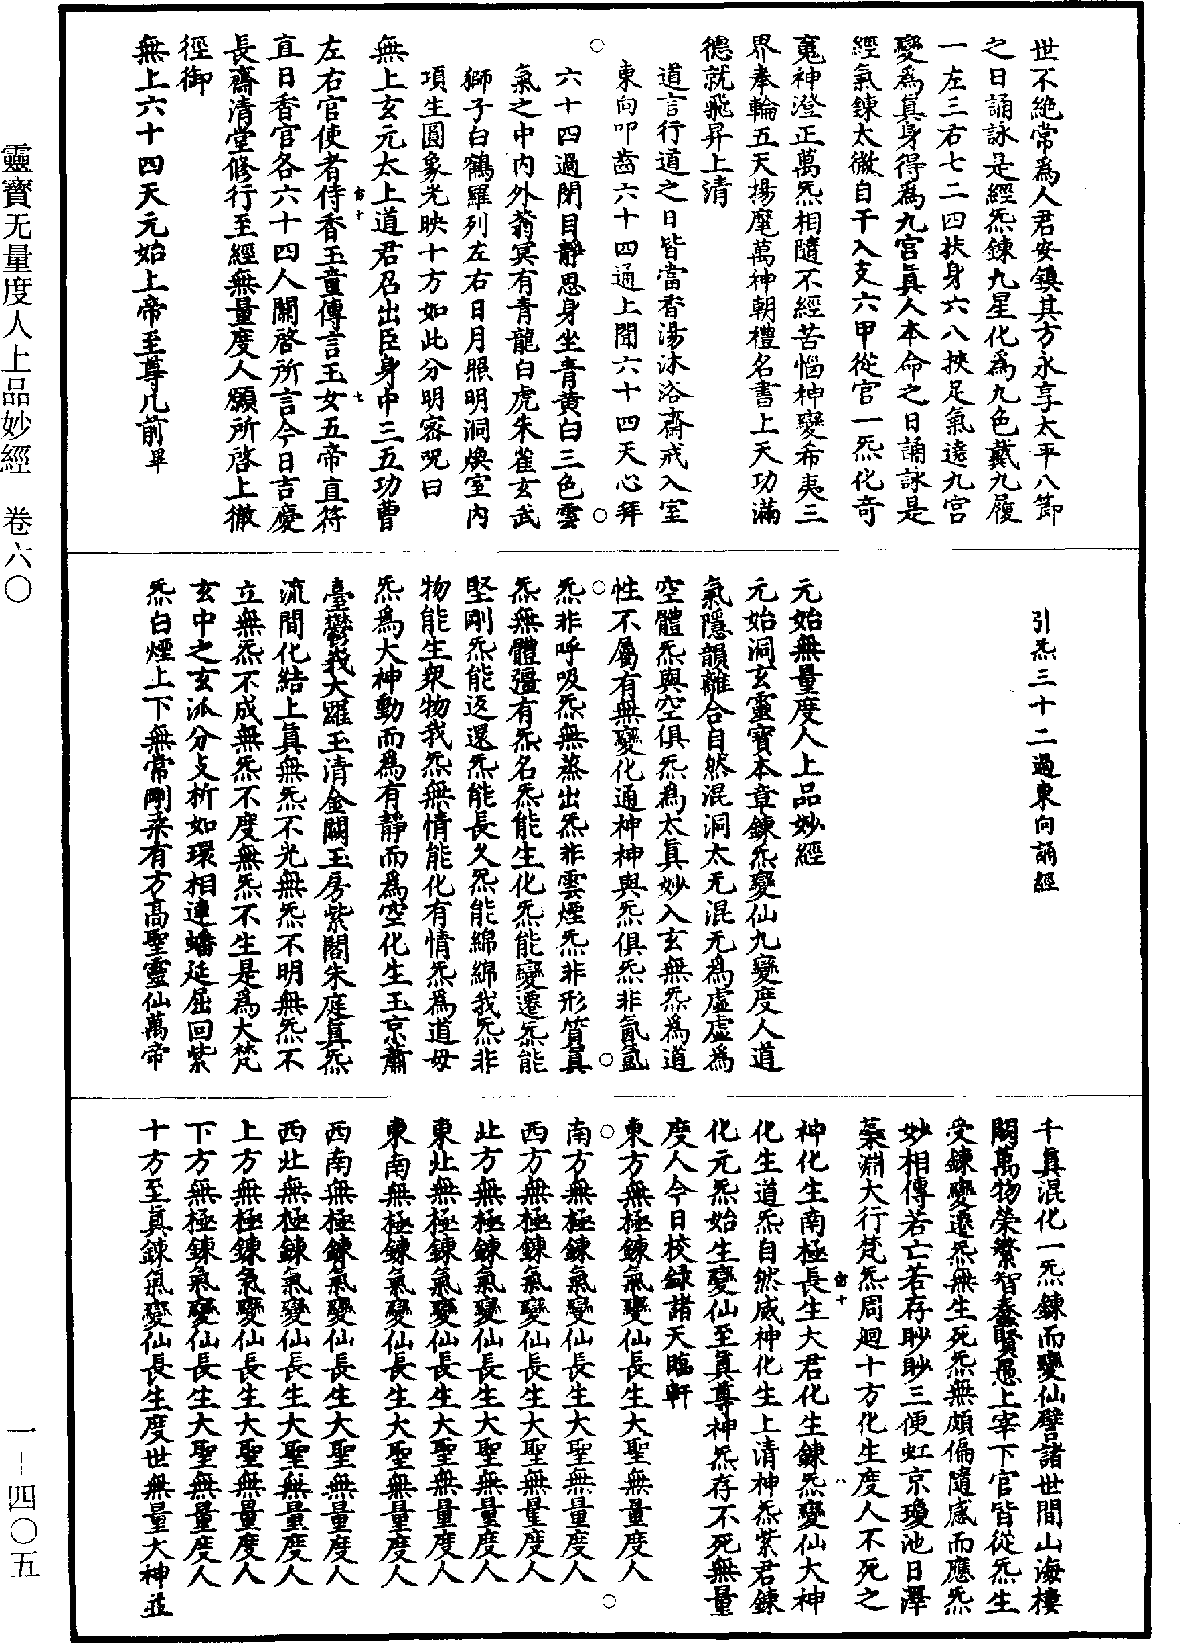 世不絶常爲人君安鎮其方永享太平八節
之日誦詠是經炁鍊九星化爲九色戴九履
一左三右七二四扶身六八挾足氣遶九宮
變爲真身得爲九宮眞人本命之日誦詠是
經氣鍊太微自干入支六甲從官一炁化奇
寃神澄正萬炁相隨不經苦惱神變希夷三
界奉輪五天揚麾萬神朝禮名書上天功滿
德就飛昇上清
道言行道之日皆當香湯沐浴齋戒入室
東向叩齒六十四通上聞六十四天心拜
六十四過閉目靜思身坐青黄白三色雲
氣之中内外蓊冥有青龍白虎朱雀玄武
獅子白鶴羅列左右日月照明洞煥室内
項生圓象光映十方如此分明密呪曰
無上玄元太上道君召出臣身中三五功曹
左右官使者侍香玉童傳言玉女五帝直符
直日香官各六十四人關啓所言今日吉慶
長齋清堂修行至經無量度人願所啓上徹
徑御
無上六十四天元始上帝至尊几前畢
引炁三十二過東向誦經
元始無量度人上品妙經
元始洞玄靈寳本章鍊炁變仙九變度人道
氣隱韻離合自然混洞太无混无爲虚虚爲
空體炁與空俱炁爲太真妙入玄無炁爲道
性不屬有無變化通神神與炁俱炁非氤氲
炁非呼吸炁無蒸出炁非雲煙炁非形質真
炁無體彊有炁名炁能生化炁能變遷炁能
堅剛炁能返還炁能長久炁能綿綿我炁非
物能生衆物我炁無情能化有情炁爲道母
炁爲大神動而爲有靜而爲空化生玉京蕭
臺鬱我大羅玉清金闕玉房紫閣朱庭真炁
流間化結上真無炁不光無炁不明無炁不
立無炁不成無炁不度無炁不生是爲大梵
玄中之玄派分支析如環相連蟠延屈回紫
炁白煙上下無常剛柔有方高聖靈仙萬帝
千真混化一炁鍊而變仙譬諸世間山海樓
閣萬物榮繁智蠢賢愚上宰下官皆從炁生
受鍊變遷炁無生死炁無頗偏隨感而應炁
妙相傳若亡若存眇眇三便虹京瓊池日澤
蘂淵大行梵炁周迴十方化生度人不死之
神化生南極長生大君化生鍊炁變仙大神
化生道炁自然威神化生上清神炁紫君鍊
化元炁始生變仙至真尊神炁存不死無量
度人今日校録諸天臨軒
東方無極鍊氣變仙長生大聖無量度人
南方無極鍊氣變仙長生大聖無量度人
西方無極鍊氣變仙長生大聖無量度人
北方無極鍊氣變仙長生大聖無量度人
東北無極鍊氣變仙長生大聖無量度人
東南無極鍊氣變仙長生大聖無量度人
西南無極鍊氣變仙長生大聖無量度人
西北無極鍊氣變仙長生大聖無量度人
上方無極鍊氣變仙長生大聖無量度人
下方無極鍊氣變仙長生大聖無量度人
十方至真鍊氣變仙長生度世無量大神並
靈寶无量度人上品妙經 卷六〇
一—四〇五